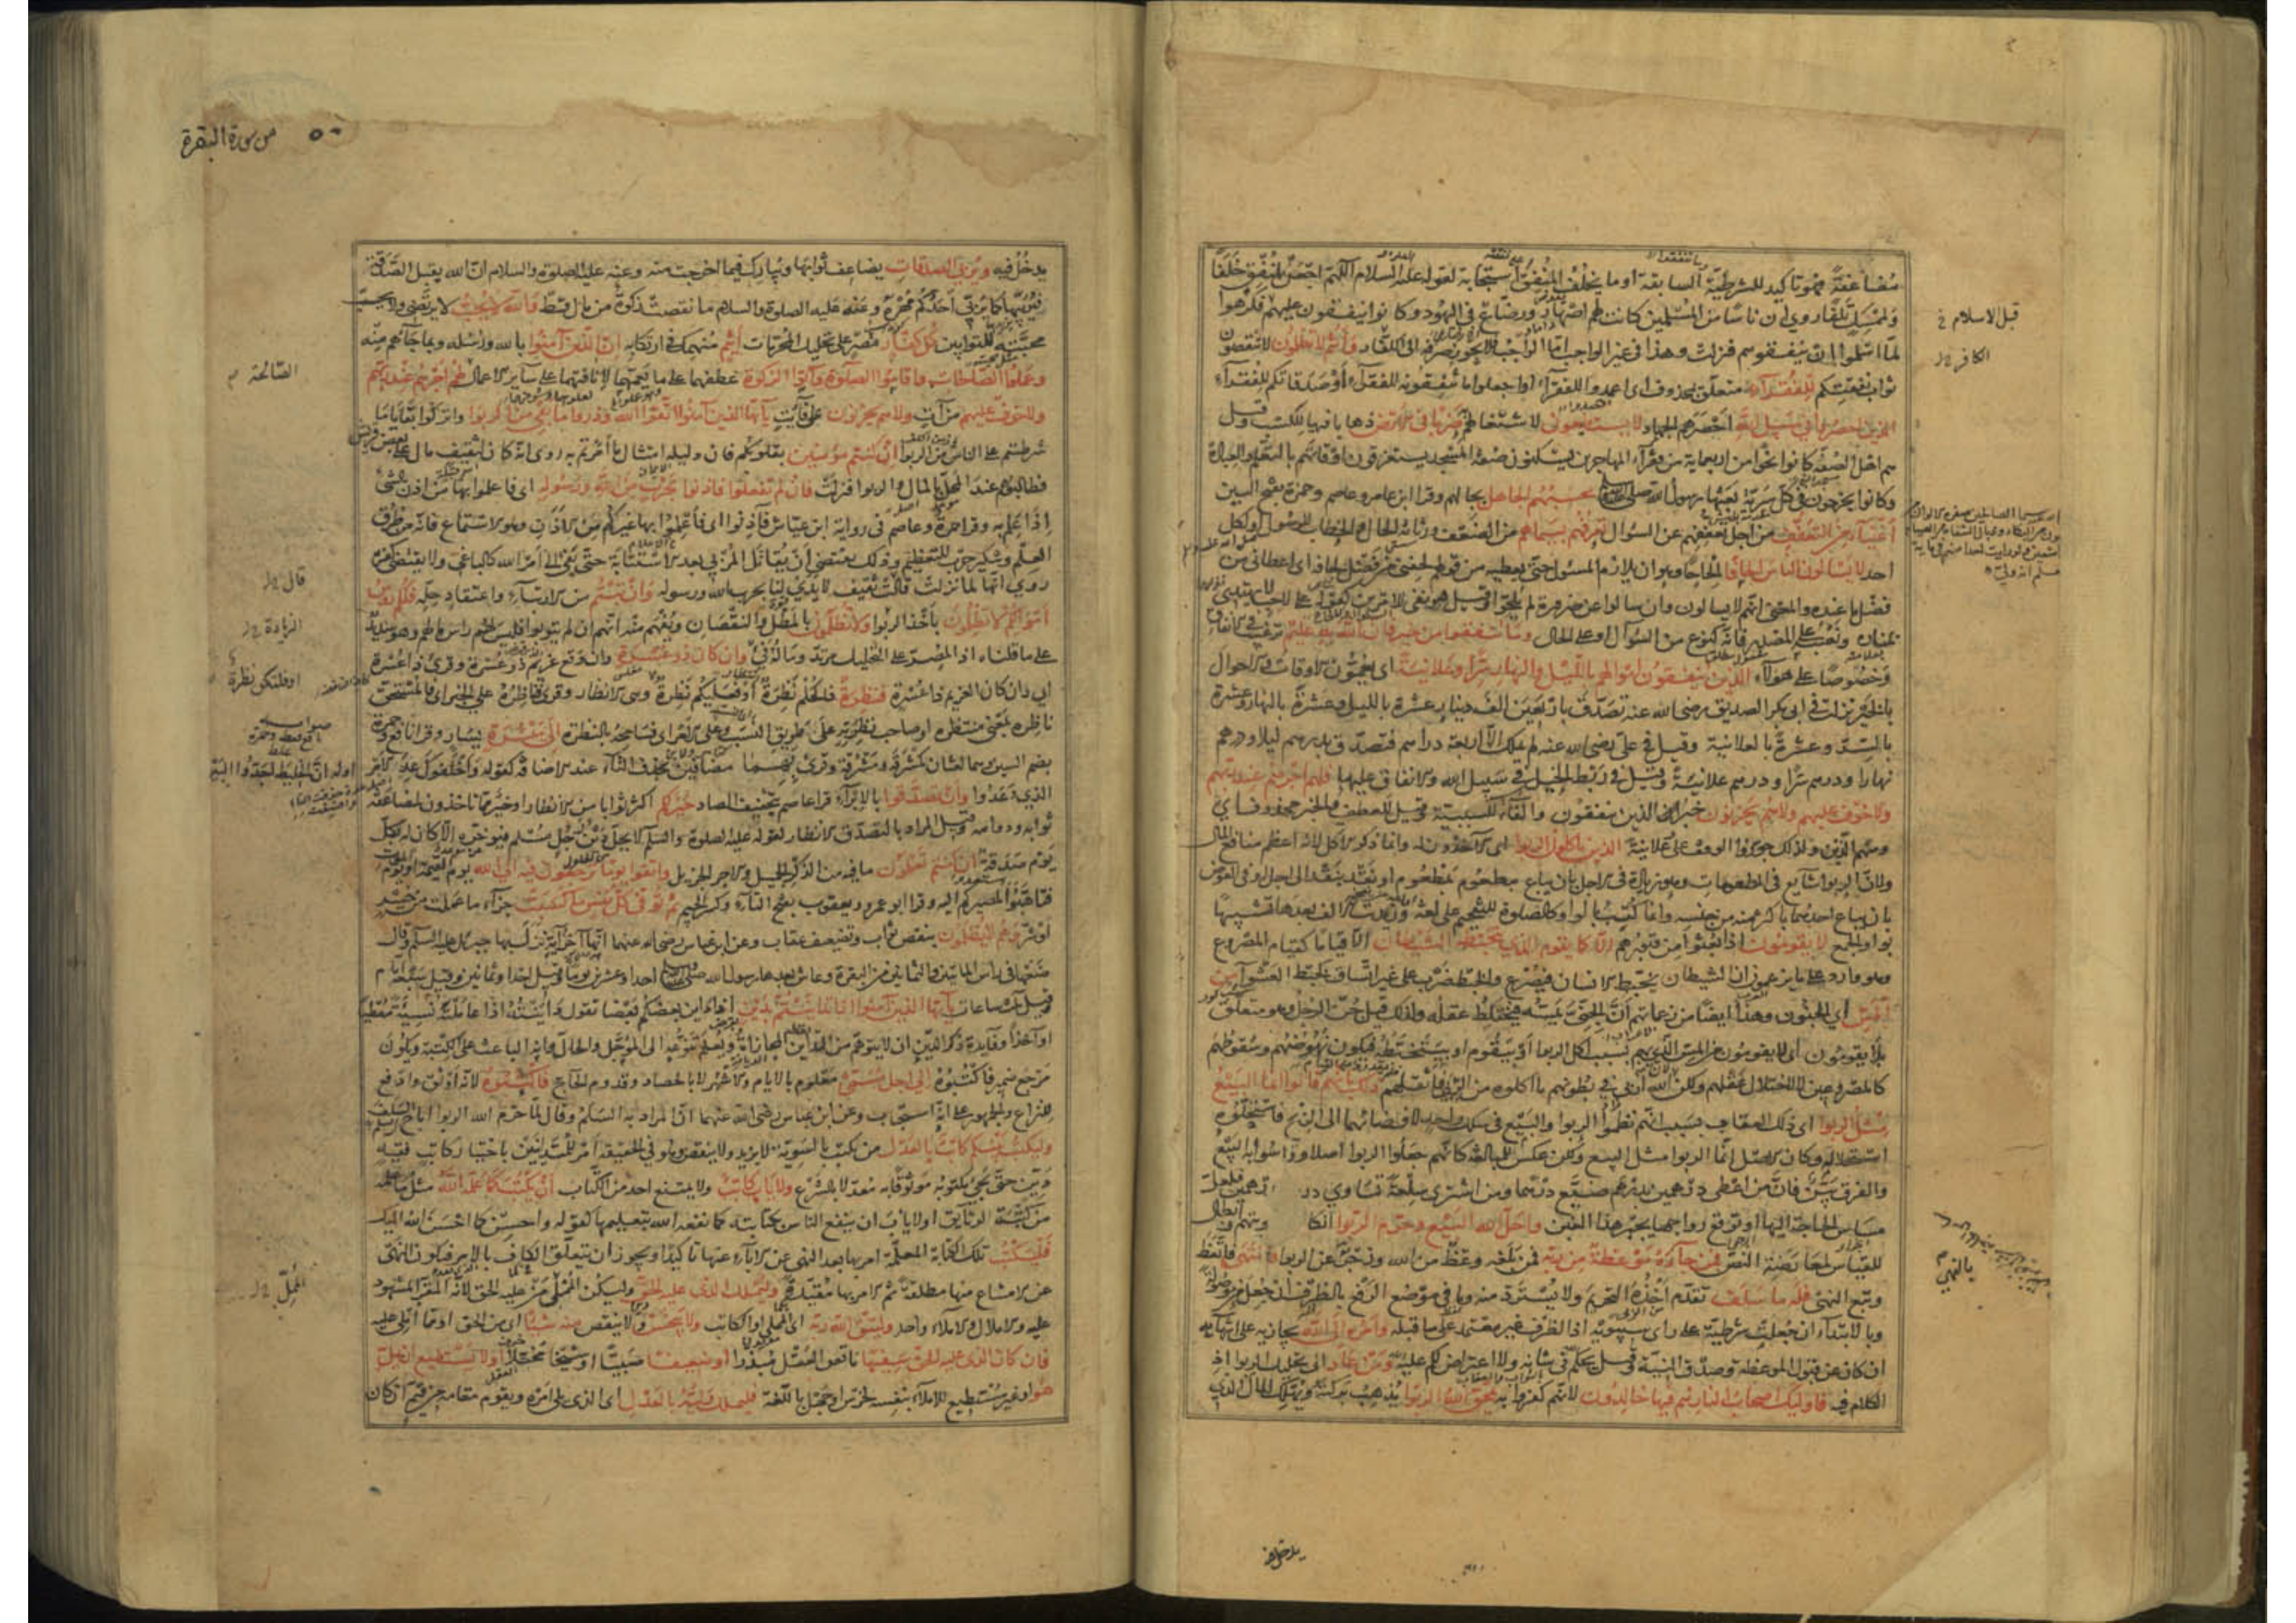 مضاعفة فهو تاكيد للشرطية السابقة او ما يخلف المنفق استجابة لقوله عليه السلام اللهم اجعل لمنفق خلفا
ولممسك تلفا روي ان ناسا من المسلمين كانت لهم اصهار ورضاع في اليهود وكانوا ينفقون عليهم فكرهوا
لما اسلموا ان ينفقوهم فنزلت وهذا في غير الواجب اما الواجب فلا يجوز صرفه الى الكفار وانتم لا تظلمون لا تنقصون
ثواب نفقتكم للفقراء متعلق بمحذوف اى اعمدوا للفقراء او اجعلوا ما تنفقونه للفقراء او صدقاتكم للفقراء
الذين احصروا في سبيل الله احصرهم الجهاد لا يستطيعون لاشتغالهم ضربا في الارض ذهابا فيها للكسب وقيل
هم اهل الصفة كانوا نحوا من اربعماية من فقرآء المهاجرين يسكنون صفة المسجد يستغرقون اوقاتهم بالتعلم والعبادة
وكانوا يخرجون في كل سرية بعثها رسول الله صلى يحسبهم الجاهل بحالهم وقرا ابن عامر وعاصم وحمزة بفتح السين
اغنياء من التعفف من اجل تعففهم عن السوال تعرفهم بسيماهم من الضعف ورثاثة الحال والخطاب للرسول او لكل
احد لا يسالون الناس الحافا الحاحا وهو ان يلازم المسئول حتى يعطيه من قولهم لحفني من فضل لحافه اى اعطاني من
فضل ما عنده والمعنى انهم لا يسالون وان سالوا عن ضرورة لم يلحوا وقيل هو نفي للامرين كقوله على لاحب لا يهتدى
بمناره ونصبه على المصدر فانه كنوع من السؤال او على الحال وما تنفقوا من خير فان الله به عليم ترغيب في الانفاق
وخصوصا على هؤلاء الذين ينفقون اموالهم بالليل والنهار سرا وعلانية اى يعمون الاوقات والاحوال
بالخير نزلت في ابي بكر الصديق رضى الله عنه تصدق باربعين الف دينار عشرة بالليل وعشرة بالنهار وعشرة
بالسر وعشرة بالعلانية وقيل في علي رضى الله عنه لم يملك الا اربعة دراهم فتصدق بدرهم ليلا ودرهم
نهارا ودرهم سرا ودرهم علانية وقيل في ربط الخيل في سبيل الله والانفاق عليها فلهم اجرهم عند ربهم
ولا خوف عليهم ولا هم يحزنون خبر الذين ينفقون والفاء للسببية وقيل للعطف والخبر محذوف اي
ومنهم الذين ولذلك جوزوا الوقف على علانية الذين ياكلون الربوا اى الآخذون له وانما ذكر الاكل لانه اعظم منافع المال
ولان الربوا شايع في المطعومات وهو زيادة في الاجل بان يباع مطعوم بمطعوم او نقد بنقد الى اجل او في العوض
بان يباع احدهما باكثر منه من جنسه وانما كتب بالواو كالصلوة للتفخيم على لغة وزيدت الالف بعدها تشبيها
بواو الجمع لا يقومون اذا بعثوا من قبورهم الا كما يقوم الذي يتخبطه الشيطان الا قياما كقيام المصروع
وهو وارد على ما يزعمون ان الشيطان يخبط الانسان فيصرع والخبط ضرب على غير اتساق كخبط العشوآء من
المس اي الجنون وهذا ايضا من زعماتهم ان الجني يمسه فيختلط عقله ولذلك قيل جن الرجل وهو متعلق
بلا يقومون اى لا يقومون من المس الذي بهم بسبب اكل الربوا او بيقوم او بيتخبطه فيكون نهوضهم وسقوطهم
كالمصروعين لا لاختلال عقلهم ولكن لان الله اربى في بطونهم ما اكلوه من الربوا فاثقلهم ذلك بانهم قالوا انما البيع
مثل الربوا اى ذلك العقاب بسبب انهم نظموا الربوا والبيع في سلك واحد لافضائهما الى الربح فاستحلوه
استحلاله وكان الاصل انما الربوا مثل البيع ولكن عكس للمبالغة كانهم جعلوا الربوا اصلا وقاسوا به البيع
والفرق بين فان من اعطى درهمين بدرهم ضيع درهما ومن اشترى سلعة تساوي در
مساس الحاجة اليها او توقع رواجها يجبر هذا الغبن واحل الله البيع وحرم الربوا انكا
للقياس لمعارضة النص فمن جآءه موعظة من ربه فمن بلغه وعظ من الله وزجر عن الربوا فانتهى فاتعظ
وتبع النهى فله ما سلف تقدم اخذه التحريم ولا يسترد منه وما في موضع الرفع بالظرف ان جعل من موصولة
وبالابتداء ان جعلت شرطية على راى سيبويه اذ الظرف غير معتمد على ما قبله وامره الى الله يجازيه على انتهائه
ان كان عن قبول الموعظة وصدق النية وقيل يحكم في شانه ولا اعتراض لكم عليه ومن عاد الى تحليل الربوا اذ
الكلام فيه فاوليك اصحاب النار هم فيها خالدون لانهم كفروا به يمحق الله الربوا يذهب بركته ويهلك المال الذي
قبل الاسلام
الكافر
بالنهي
يدخل فيه
من سورة البقرة ٥٠
يدخل فيه ويربي الصدقات يضاعف ثوابها ويبارك فيما اخرجت منه وعنه عليه الصلوة والسلام ان الله يقبل الصدقة
فيربيها كما يربي احدكم مهره وعنه عليه الصلوة والسلام ما نقصت زكوة من مال قط والله لا يحب لا يرتضى ولا يحب
محبته للتوابين كل كفار مصر على تحليل المحرمات اثيم منهمك في ارتكابه ان الذين آمنوا بالله ورسله وبما جآءهم منه
وعملوا الصالحات واقاموا الصلوة وآتوا الزكوة عطفهما على ما يعمهما لانافتهما على ساير الاعمال لهم اجرهم عند ربهم
ولا خوف عليهم من آت ولا هم يحزنون على فآيت يآيها الذين آمنوا اتقوا الله وذروا ما بقي من الربوا واتركوا بقايا ما
شرطتم على الناس من الربوا ان كنتم مؤمنين بقلوبكم فان دليله امتثال ما امرتم به روى انه كان لثقيف مال على بعض قريش
فطالبوهم عند المحل بالمال والربوا فنزلت فان لم تفعلوا فاذنوا بحرب من الله ورسوله اى فاعلموا بها من اذن بالشئ
اذا علم به وقرا حمزة وعاصم في رواية ابن عياش فآذنوا اى فاعلموا بها غيركم من الاذن وهو الاستماع فانه من طرق
العلم وتنكير حرب للتعظيم وذلك يقتضى ان يقاتل المربي بعد الاستتابة حتى يفئ الى امر الله كالباغي ولا يقتضى كفره
روي انها لما نزلت قالت ثقيف لا يدي لنا بحرب الله ورسوله وان تبتم من الارتبآء واعتقاد حله فلكم رءوس
اموالكم لا تظلمون باخذ الربوا ولا تظلمون بالمطل والنقصان ويفهم منه انهم ان لم يتوبوا فليس لهم راس مالهم وهو سديد
على ما قلناه اذ المصر على التحليل مرتد وماله فئ وان كان ذو عسرة وان وقع غريم ذو عسرة وقرئ ذا عسرة
اي وان كان الغريم ذا عسرة فنظرة فالحكم نظرة او فعليكم نظرة وهى الانظار وقرئ فناظره على الخبر اى فالمستحق
ناظره بمعنى منتظره او صاحب نظرته على طريق النسب وعلى الامر اى فسامحه بالنظرة الى ميسرة يسار وقرا نافع وحمزة
بضم السين وهما لغتان كمشرقة ومشرقة وقرئ بهما مضافين بحذف التاء عند الاضافة كقوله واخلفوك عد الامر
الذي وعدوا وان تصدقوا بالابرآء وقرا عاصم بتخفيف الصاد خير لكم اكثر ثوابا من الانظار او خير مما تاخذون لمضاعفة
ثوابه ودوامه وقيل المراد بالتصدق الانظار لقوله عليه الصلوة والسلم لا يحل دين رجل مسلم فيؤخره الا كان له بكل
يوم صدقة ان كنتم تعلمون ما فيه من الذكر الجميل والاجر الجزيل واتقوا يوما ترجعون فيه الى الله يوم القيمة او يوم الموت
فتاهبوا لمصيركم اليه وقرا ابو عمرو ويعقوب بفتح التآء وكسر الجيم ثم توفى كل نفس ما كسبت جزآء ما عملت من خير
او شر وهم لا يظلمون بنقص ثواب وتضعيف عقاب وعن ابن عباس رضى الله عنهما انها آخر آية نزل بها جبريل عليه السلم وقال
ضعها في راس المائتين والثمانين من البقرة وعاش بعدها رسول الله صلى احدا وعشرين يوما وقيل احدا وثمانين وقيل سبعة ايام
وقيل ثلث ساعات يآيها الذين آمنوا اذا تداينتم بدين اذا داين بعضكم بعضا تقول داينته اذا عاملته نسيئة معطيا
او آخذا وفايدة ذكر الدين ان لا يتوهم من التداين المجازاة ويعلم تنوعه الى المؤجل والحال وانه الباعث على الكتبة ويكون
مرجع ضمير فاكتبوه الى اجل مسمى معلوم بالايام والاشهر لا بالحصاد وقدوم الحاج فاكتبوه لانه اوثق وادفع
للنزاع والجمهور على انه استحباب وعن ابن عباس رضى الله عنهما ان المراد به السلم وقال لما حرم الله الربوا اباح السلف
وليكتب بينكم كاتب بالعدل من يكتب بالسوية لا يزيد ولا ينقص وهو في الحقيقة امر للمتداينين باختيار كاتب فقيه
دين حتى يجئ مكتوبه موثوقا به معدلا بالشرع ولا ياب كاتب ولا يمتنع احد من الكتاب ان يكتب كما علمه الله مثل ما علمه
من كتبة الوثايق او لا ياب ان ينفع الناس بكتابته كما نفعه الله بتعليمها كقوله واحسن كما احسن الله اليك
فليكتب تلك الكتابة المعلمة امر بها بعد النهى عن الابآء عنها تاكيدا ويجوز ان يتعلق الكاف بالامر فيكون النهى
عن الامتناع منها مطلقة ثم الامر بها مقيدة وليملل الذى عليه الحق وليكن المملى من عليه الحق لانه المقر المشهود
عليه والاملال والاملآء واحد وليتق الله ربه اى المملى او الكاتب ولا يبخس ولا ينقص منه شيئا اى من الحق او مما املى عليه
فان كان الذى عليه الحق سفيها ناقص العقل مبذرا او ضعيفا صبيا او شيخا مختلا او لا يستطيع ان يمل
هو او غير مستطيع للاملآء بنفسه لخرس او جهل باللغة فليملل وليه بالعدل اى الذى يلى امره ويقوم مقامه من قيم ان كان
الصالحة
قال
الزيادة
او فلتكن نظرة